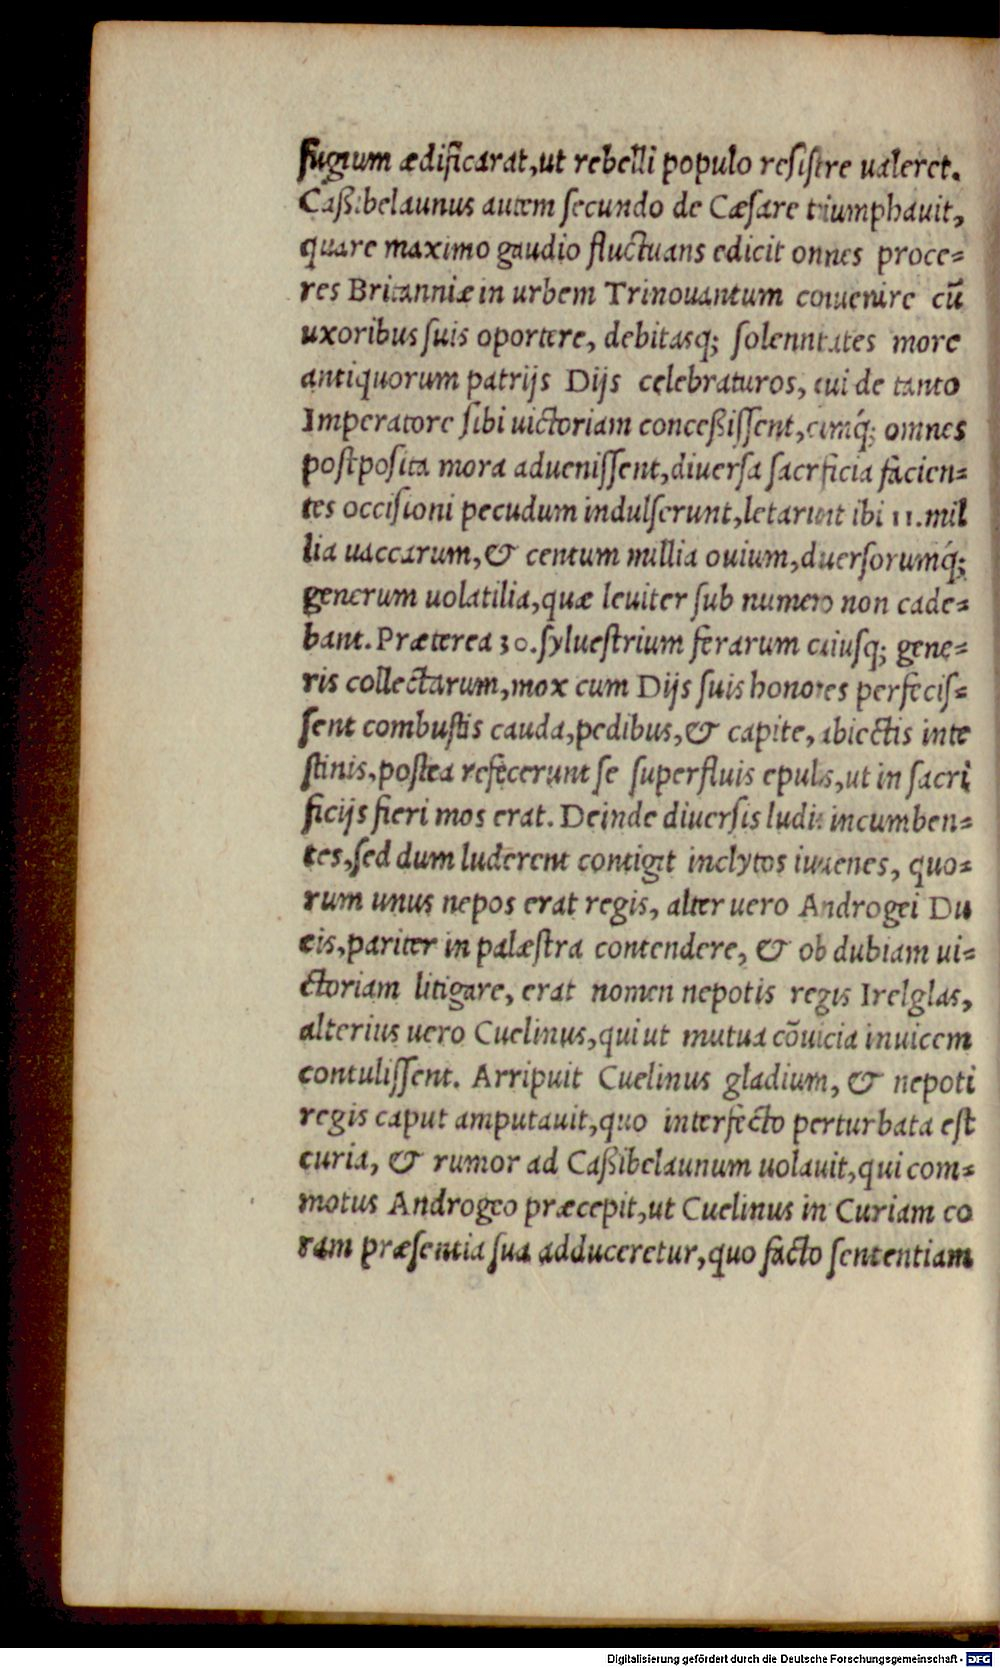 fugium ædificarat, ut rebelli populo resistre ualeret.
Caßibelaunus autem secundo de Cæsare triumphauit,
quare maximo gaudio fluctuans edicit onnes proce=
res Britanniæ in urbem Trinouantum conuenire cū
uxoribus suis oportere, debitasq; solenntates more
antiquorum patrijs Dijs celebraturos, qui de tanto
Imperatore sibi uictoriam conceßissent, cumq́; omnes
postposita mora aduenissent, diuersa sacrficia facien=
tes occisioni pecudum indulserunt, letarunt ibi 11. mil
lia uaccarum, & centum millia ouium, diuersorumq́;
generum uolatilia, quæ leuiter sub numero non cade=
bant. Præterea 30. syluestrium ferarum cuiusq; gene=
ris collectarum, mox cum Dijs suis honores perfecis=
sent combustis cauda, pedibus, & capite, abiectis inte
stinis, postea refecerunt se superfluis epulis, ut in sacri
ficijs fieri mos erat. Deinde diuersis ludis incumben=
tes, sed dum luderent contigit inclytos iuuenes, quo=
rum unus nepos erat regis, alter uero Androgei Du
cis, pariter in palæstra contendere, & ob dubiam ui=
ctoriam litigare, erat nomen nepotis regis Irelglas,
alterius uero Cuelinus, qui ut mutua cōuicia inuicem
contulissent. Arripuit Cuelinus gladium, & nepoti
regis caput amputauit, quo interfecto perturbata est
curia, & rumor ad Caßibelaunum uolauit, qui com=
motus Androgeo præcepit, ut Cuelinus in Curiam co
ram præsentia sua adduceretur, quo facto sententiam
Digitalisierung gefördert durch die Deutsche Forschungsgemeinschaft - DFG